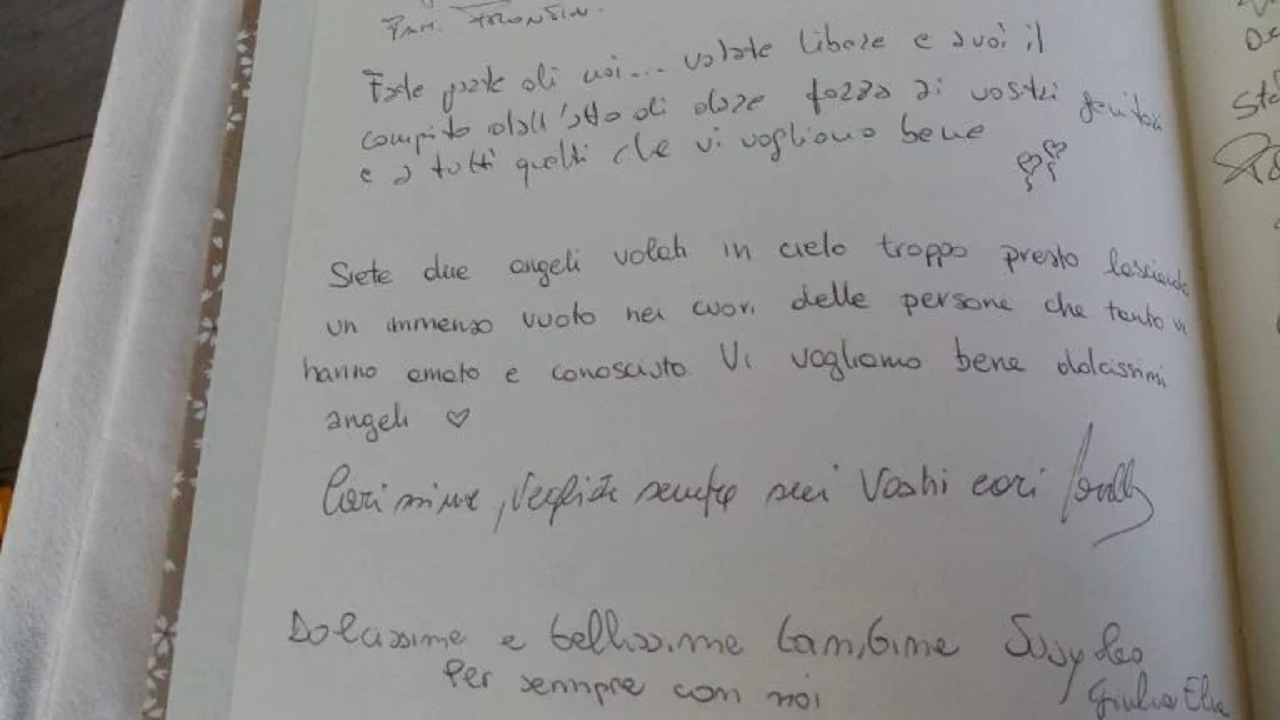 Fam. Fronsin.
Fate parte di noi... volate libere e avoi il
compito dall'alto di dare forza ai vostri genitori
e a tutti quelli che vi vogliono bene
Siete due angeli volati in cielo troppo presto lasciando
un immenso vuoto nei cuori delle persone che tanto vi
hanno amato e conosciuto Vi vogliamo bene dolcissimi
angeli ♡
Carissime, vegliate sempre sui Vostri cari
Dolcissime e bellissime bambine Susy Leo
Per sempre con noi
Giulia Elia